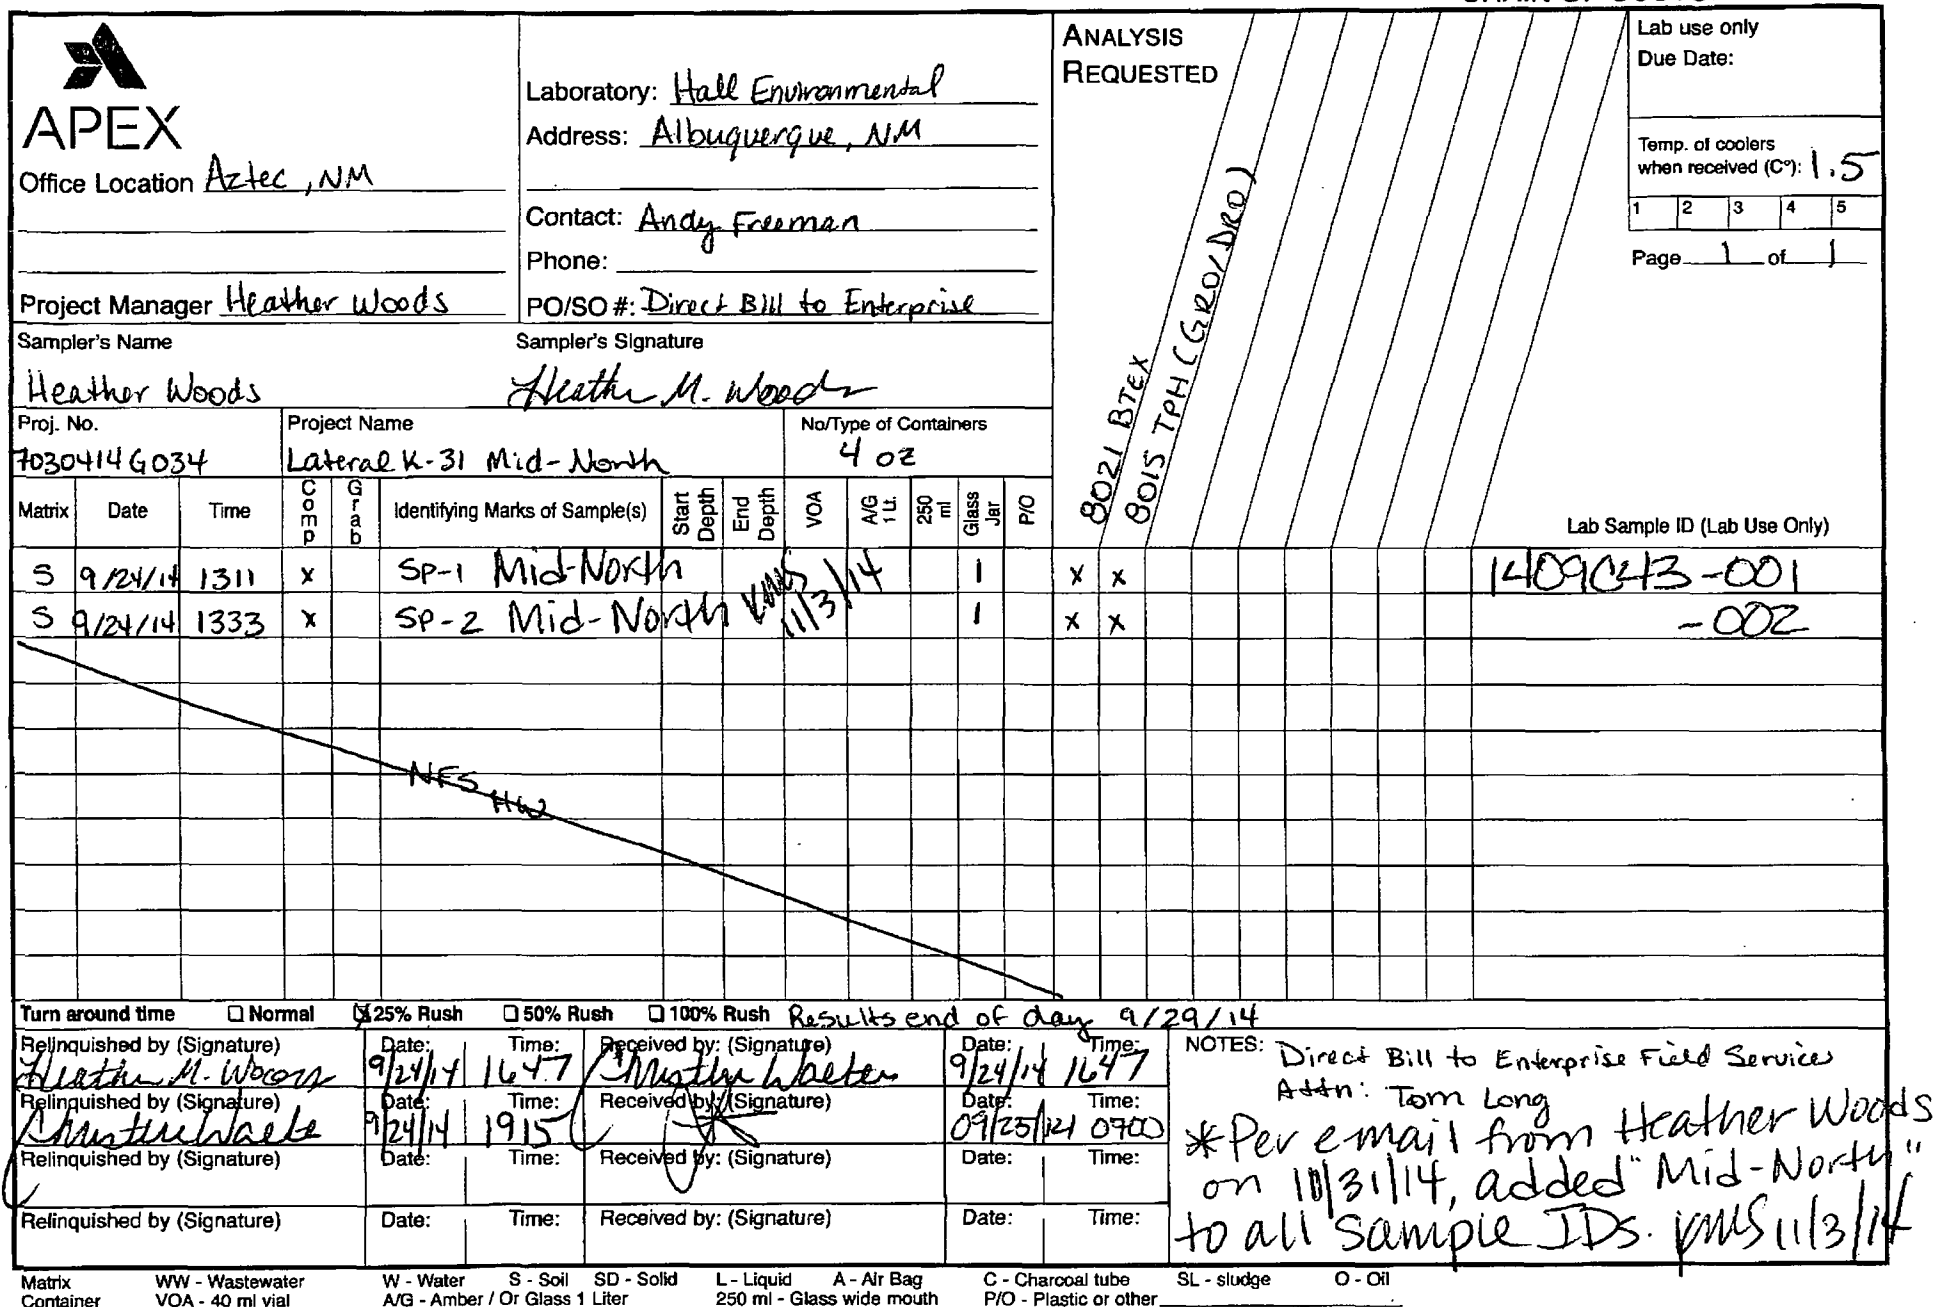 APEX
Office Location Aztec, NM
Project Manager Heather Woods
Laboratory: Hall Environmental
Address: Albuquerque, NM
Contact: Andy Freeman
Phone:
PO/SO #: Direct Bill to Enterprise
ANALYSIS
REQUESTED
8021 BTEX
8015 TPH (GRO/DRO)
Lab use only
Due Date:
Temp. of coolers
when received (C°): 1.5
1 2 3 4 5
Page 1 of 1
Sampler's Name
Heather Woods
Sampler's Signature
Heather M. Woods
Proj. No.
7030414G034
Project Name
Lateral K-31 Mid-North
No/Type of Containers
4 oz
Matrix Date Time Comp Grab Identifying Marks of Sample(s) Start Depth End Depth VOA A/G 1 Lt. 250 ml Glass Jar P/O Lab Sample ID (Lab Use Only)
S 9/24/14 1311 x SP-1 Mid-North 1 x x 1409C43-001
S 9/24/14 1333 x SP-2 Mid-North 11/3/14 1 x x -002
NFS
HW
Turn around time Normal 25% Rush 50% Rush 100% Rush Results end of day 9/29/14
Relinquished by (Signature) Date: Time: Received by: (Signature) Date: Time:
Heather M. Woods 9/24/14 1647 9/24/14 1647
Relinquished by (Signature) Date: Time: Received by: (Signature) Date: Time:
9/24/14 1915 09/25/14 0700
Relinquished by (Signature) Date: Time: Received by: (Signature) Date: Time:
Relinquished by (Signature) Date: Time: Received by: (Signature) Date: Time:
NOTES: Direct Bill to Enterprise Field Services
Attn: Tom Long
*Per email from Heather Woods
on 10/31/14, added "Mid-North"
to all sample IDs. 11/3/14
Matrix WW - Wastewater W - Water S - Soil SD - Solid L - Liquid A - Air Bag C - Charcoal tube SL - sludge O - Oil
Container VOA - 40 ml vial A/G - Amber / Or Glass 1 Liter 250 ml - Glass wide mouth P/O - Plastic or other